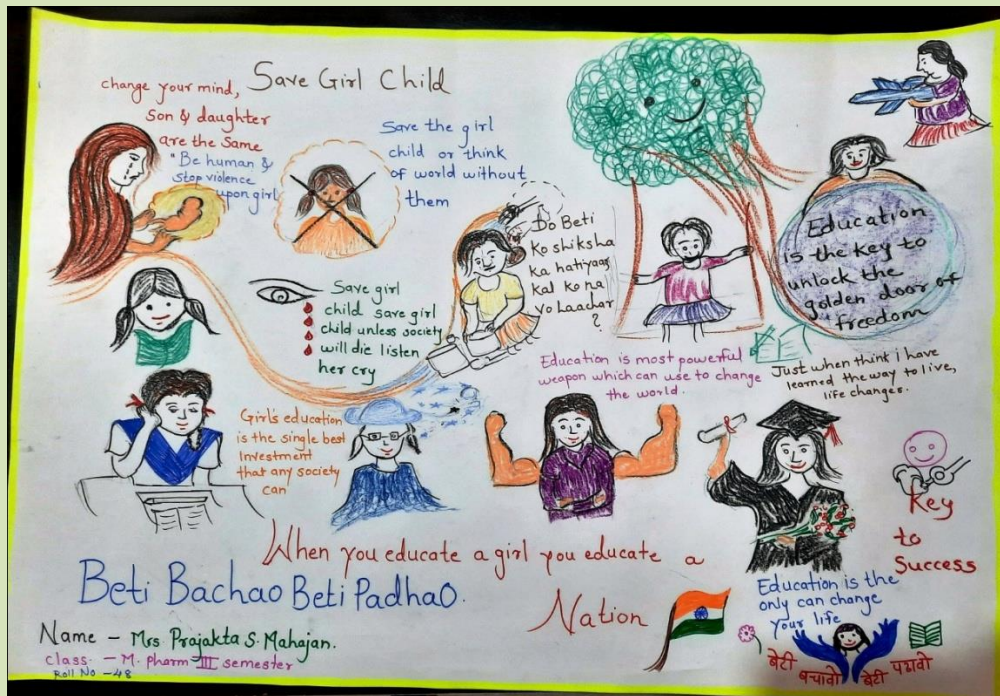 Save Girl Child
change your mind,
Son & daughter
are the Same
"Be human &
stop violence
upon girl
Save the girl
child or think
of world without
them
Do Beti
Ko shiksha
ka hatiyaar
kal ko na
vo Laachar
?
Education
is the key to
unlock the
golden door of
"freedom
Save girl
child save girl
child unless society
will die listen
her cry
Education is most powerful
weapon which can use to change
the world.
Just when think i have
learned the way to live,
life changes.
Girl's education
is the single best
Investment
that any society
can
Key
to
Success
When you educate a girl you educate a
Nation
Beti Bachao Beti Padhao.
Education is the
only can change
your life
बेटी बचावो बेटी पढावो
Name - Mrs. Prajakta S. Mahajan.
Class. - M. pharm III semester
Roll No - 48